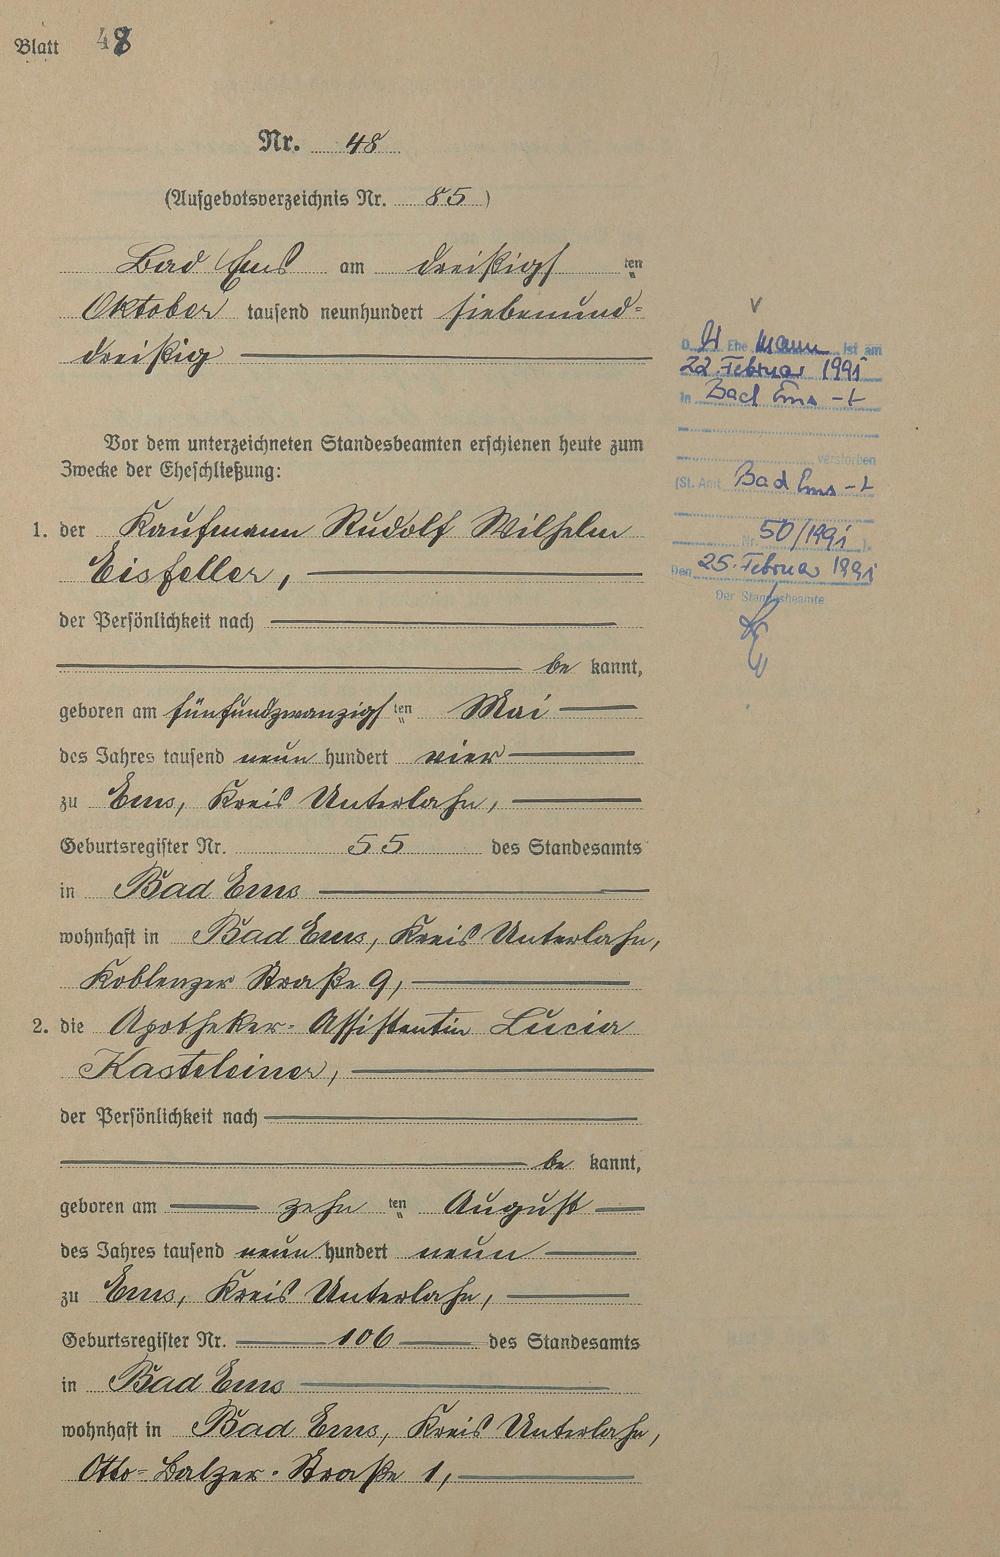 Blatt 48
Nr. 48
(Aufgebotsverzeichnis Nr. 85)
Bad Ems am dreißigsten
Oktober tausend neunhundert siebenund-
dreißig
Vor dem unterzeichneten Standesbeamten erschienen heute zum
Zwecke der Eheschließung:
1. der Kaufmann Rudolf Wilhelm
Eisfeller,
der Persönlichkeit nach
be kannt,
geboren am fünfundzwanzigsten Mai
des Jahres tausend neun hundert vier
zu Ems, Kreis Unterlahn,
Geburtsregister Nr. 55 des Standesamts
in Bad Ems
wohnhaft in Bad Ems, Kreis Unterlahn,
Koblenzer Straße 9,
2. die Apotheker-Assistentin Lucia
Kasteleiner,
der Persönlichkeit nach
be kannt,
geboren am zehnten August
des Jahres tausend neun hundert neun
zu Ems, Kreis Unterlahn,
Geburtsregister Nr. 106 des Standesamts
in Bad Ems
wohnhaft in Bad Ems, Kreis Unterlahn,
Otto-Balzer-Straße 1,
D er Ehe mann ist am
22. Februar 1991
in Bad Ems
verstorben
(St. Amt Bad Ems
Nr. 50/1991).
Den 25. Februar 1991
Der Standesbeamte